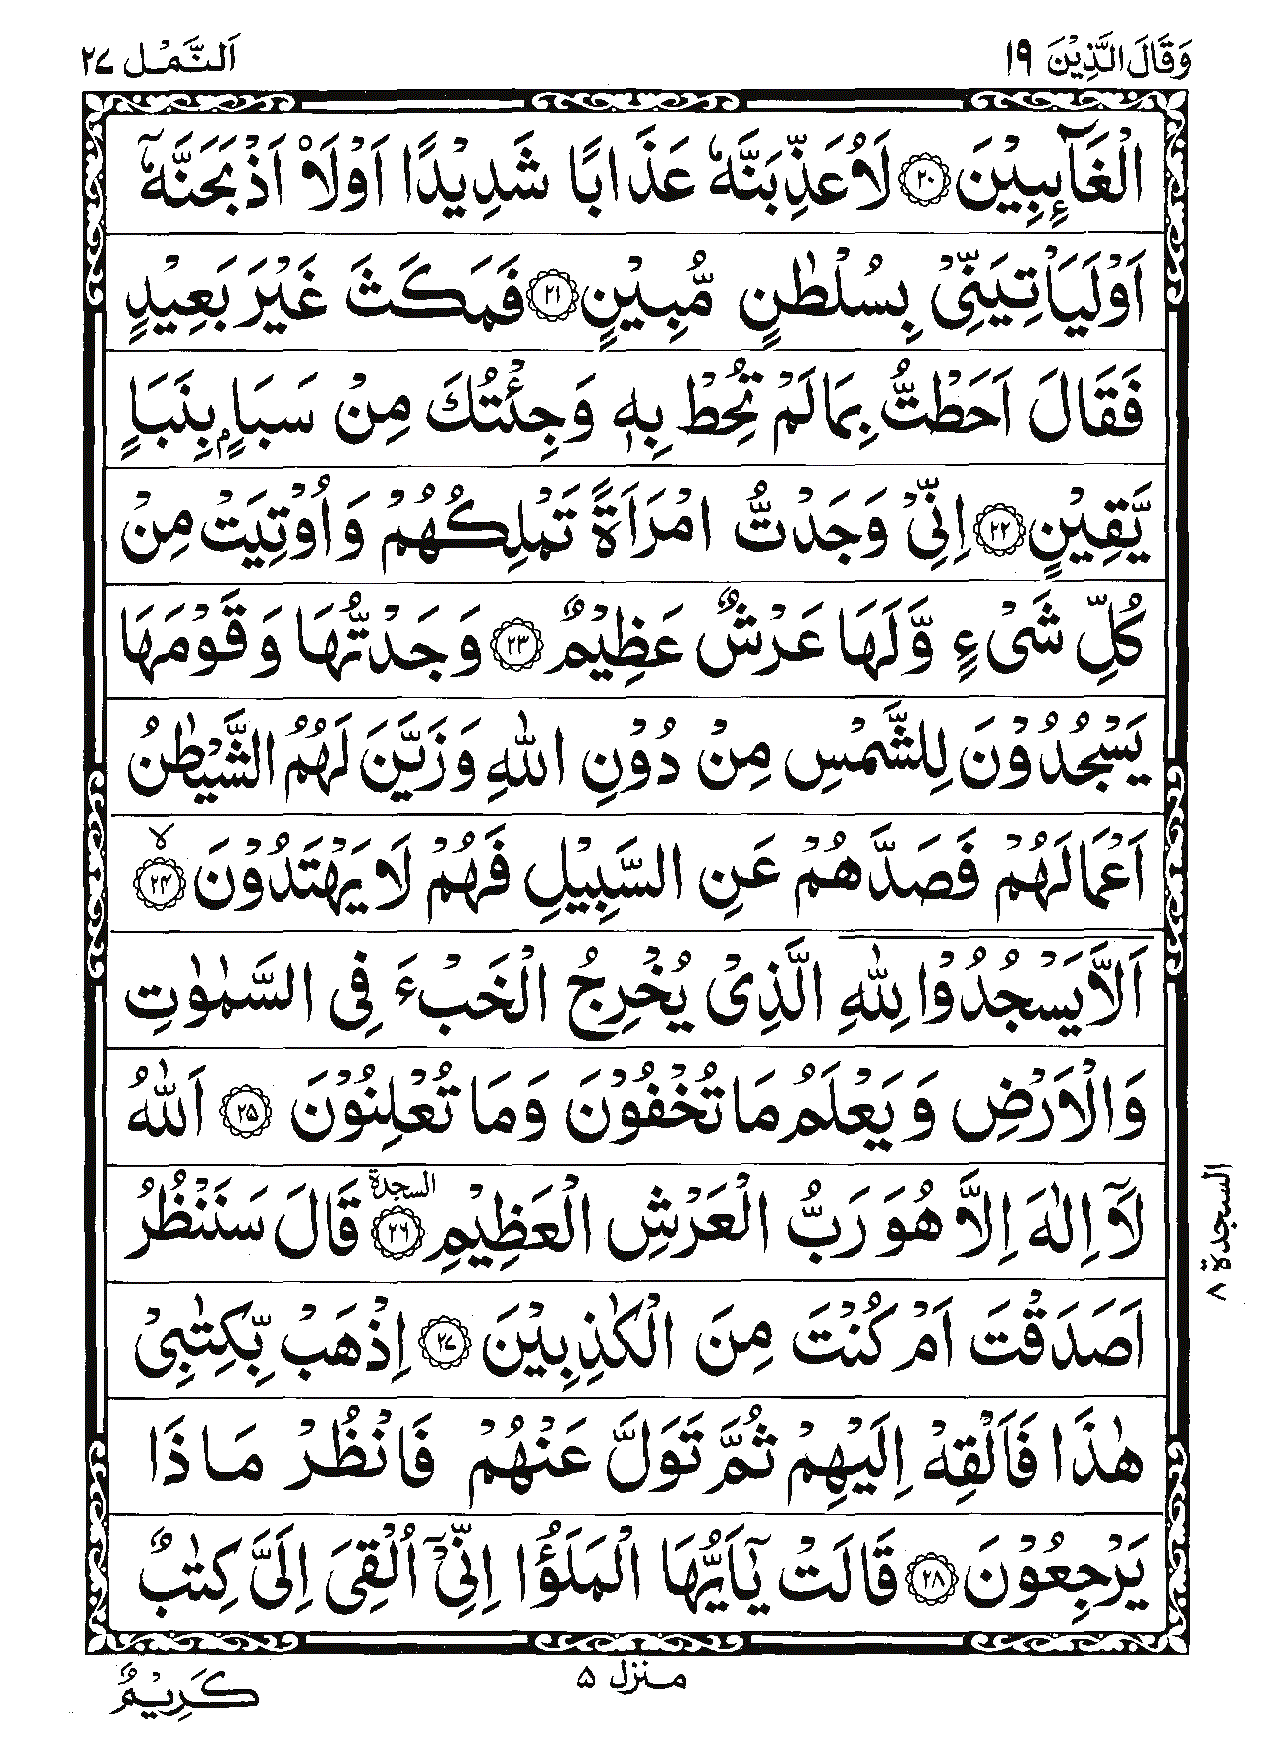 وَقَالَ الَّذِيْنَ ١٩
اَلنَّمْل ٢٧
الْغَآئِبِيْنَ ۝٢٠ لَاُعَذِّبَنَّهٗ عَذَابًا شَدِيْدًا اَوْلَاۡ اَذْبَحَنَّهٗۤ
اَوْلَيَاْتِيَنِّيْ بِسُلْطٰنٍ مُّبِيْنٍ ۝٢١ فَمَكَثَ غَيْرَ بَعِيْدٍ
فَقَالَ اَحَطْتُّ بِمَا لَمْ تُحِطْ بِهٖ وَجِئْتُكَ مِنْ سَبَاٍۭ بِنَبَاٍ
يَّقِيْنٍ ۝٢٢ اِنِّيْ وَجَدْتُّ امْرَاَةً تَمْلِكُهُمْ وَاُوْتِيَتْ مِنْ
كُلِّ شَيْءٍ وَّلَهَا عَرْشٌ عَظِيْمٌ ۝٢٣ وَجَدْتُّهَا وَقَوْمَهَا
يَسْجُدُوْنَ لِلشَّمْسِ مِنْ دُوْنِ اللّٰهِ وَزَيَّنَ لَهُمُ الشَّيْطٰنُ
اَعْمَالَهُمْ فَصَدَّهُمْ عَنِ السَّبِيْلِ فَهُمْ لَا يَهْتَدُوْنَ ۝٢٤ ۙ
اَلَّا يَسْجُدُوْا لِلّٰهِ الَّذِيْ يُخْرِجُ الْخَبْءَ فِي السَّمٰوٰتِ
وَالْاَرْضِ وَيَعْلَمُ مَا تُخْفُوْنَ وَمَا تُعْلِنُوْنَ ۝٢٥ اَللّٰهُ
لَاۤ اِلٰهَ اِلَّا هُوَ رَبُّ الْعَرْشِ الْعَظِيْمِ ۝٢٦ السجدة قَالَ سَنَنْظُرُ
السجدة ٨
اَصَدَقْتَ اَمْ كُنْتَ مِنَ الْكٰذِبِيْنَ ۝٢٧ اِذْهَبْ بِّكِتٰبِيْ
هٰذَا فَاَلْقِهْ اِلَيْهِمْ ثُمَّ تَوَلَّ عَنْهُمْ فَانْظُرْ مَاذَا
يَرْجِعُوْنَ ۝٢٨ قَالَتْ يٰۤاَيُّهَا الْمَلَؤُا اِنِّيْۤ اُلْقِيَ اِلَيَّ كِتٰبٌ
منزل ۵
كَرِيْمٌ